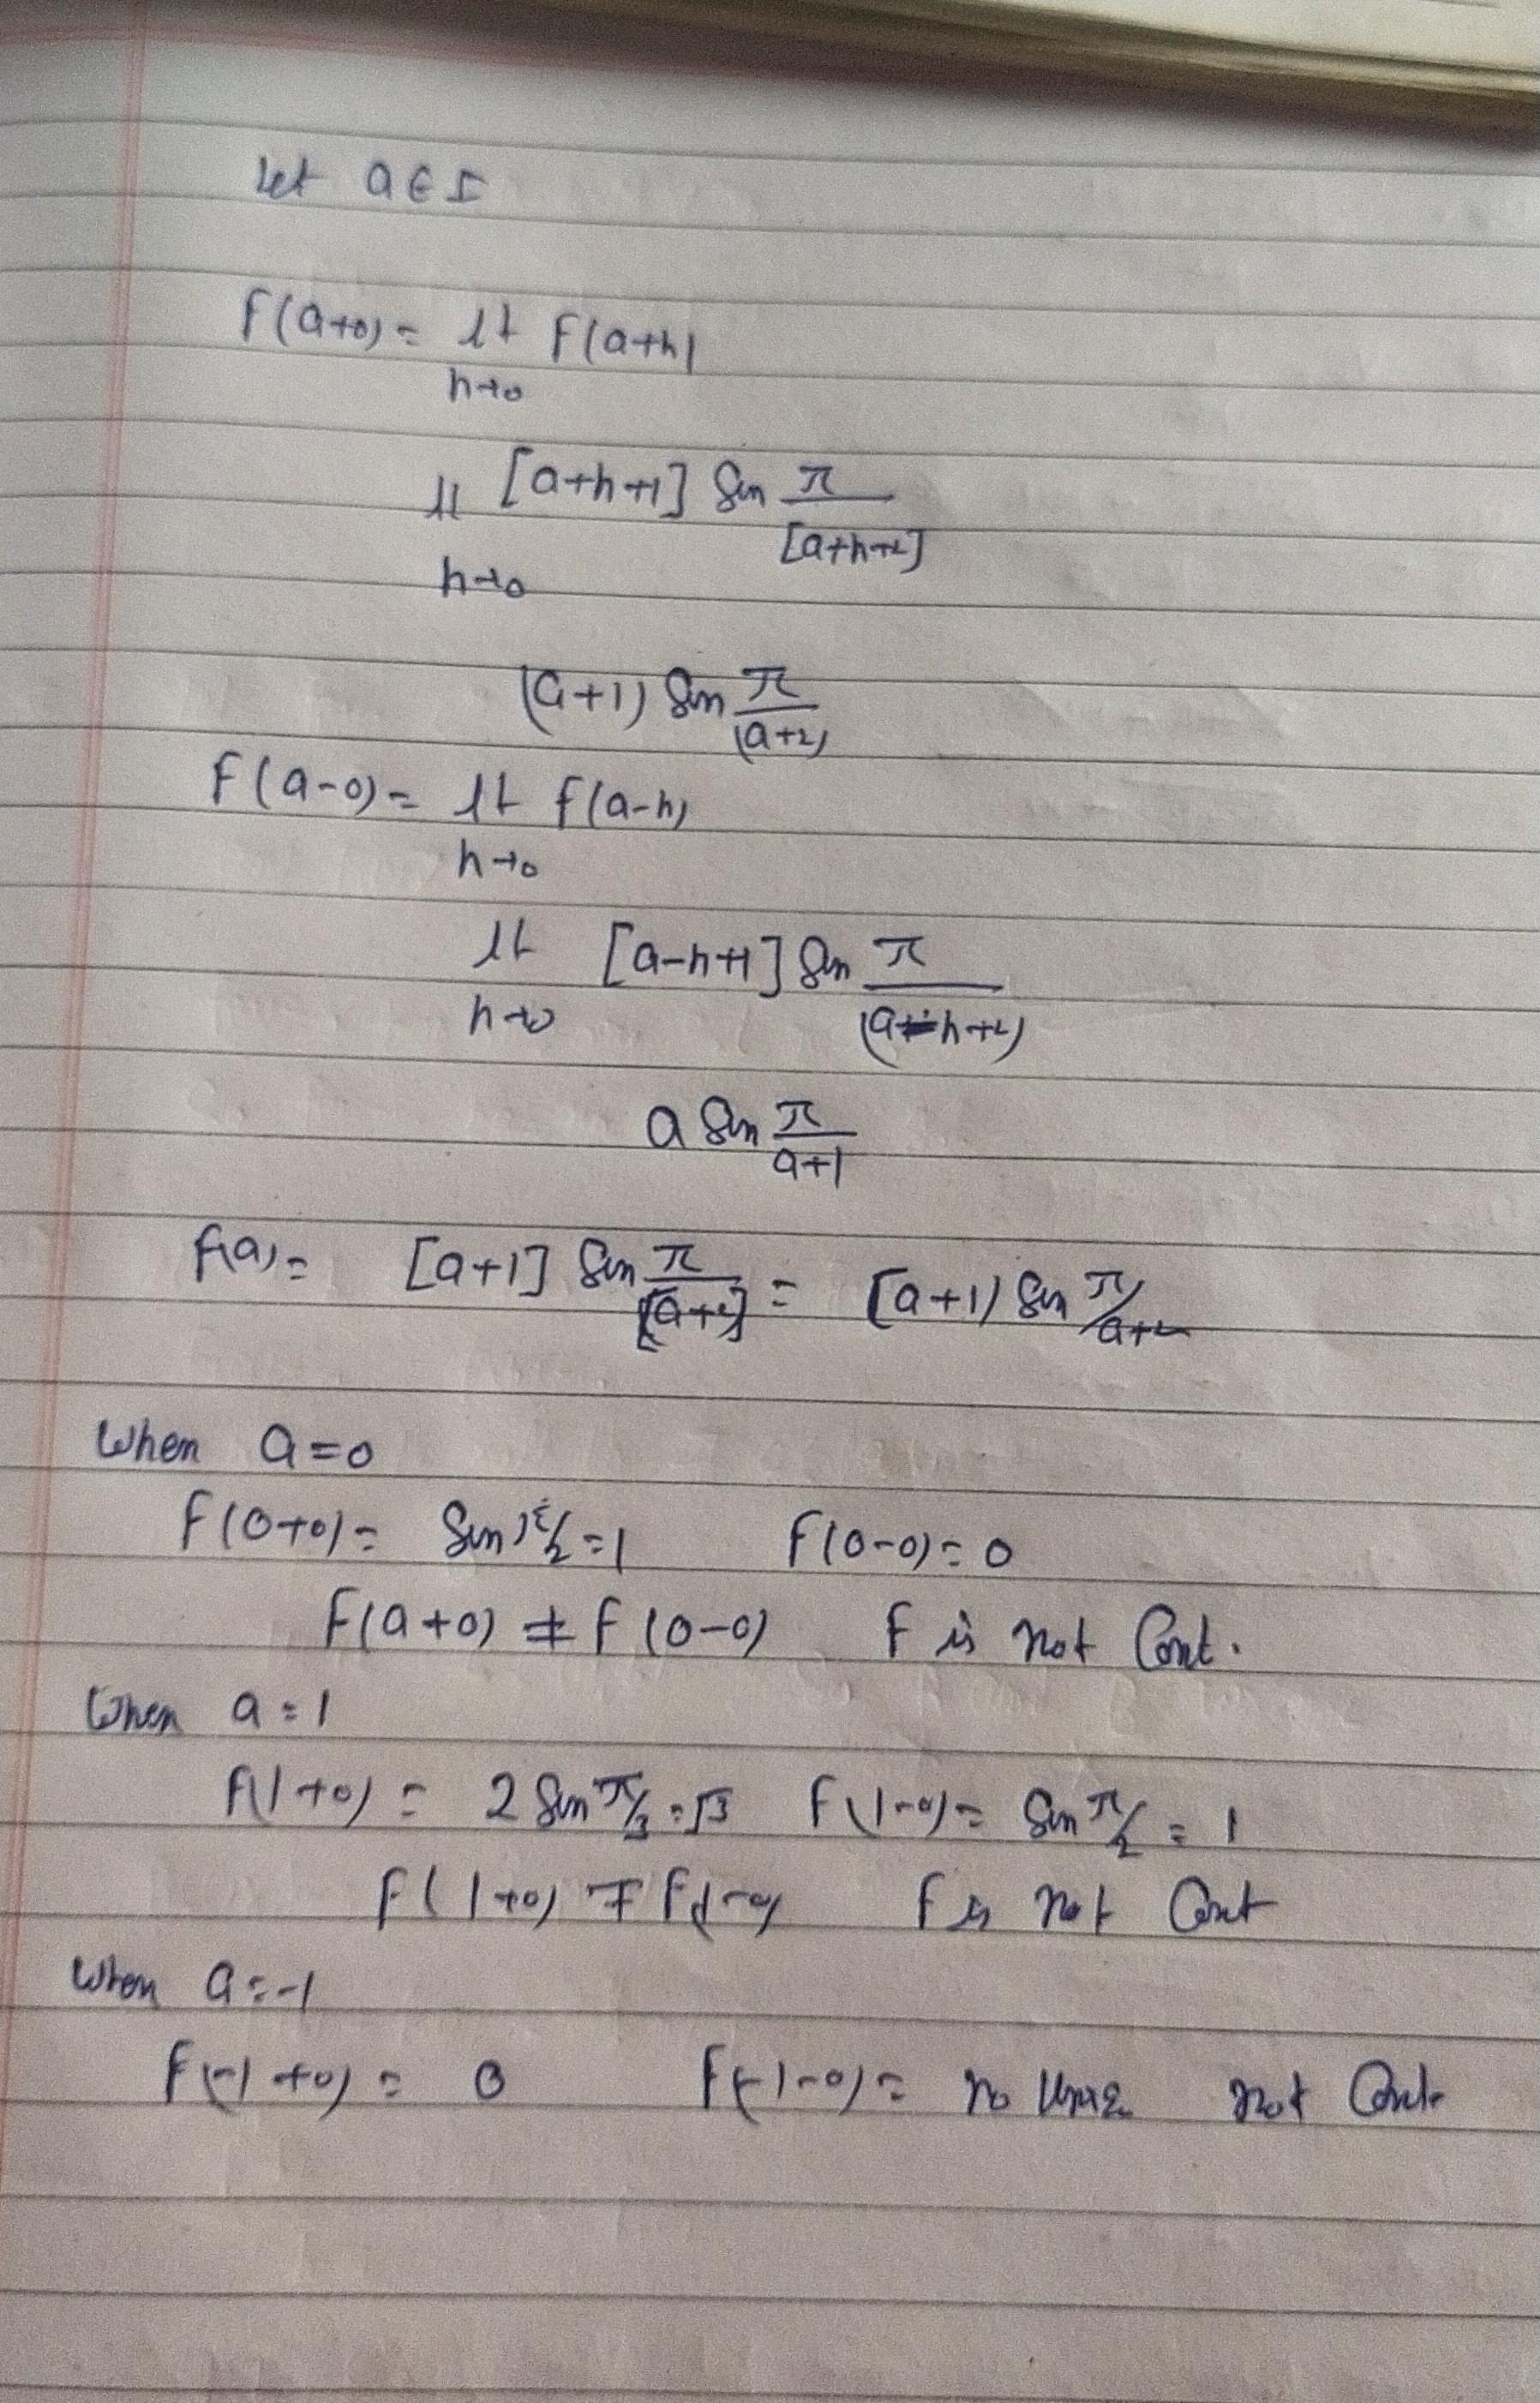 Let a ∈ I
F(a+0) = lt F(a+h)
h→0
lt [a+h+1] Sin π
[a+h+2]
h→0
(a+1) Sin π
(a+2)
F(a-0) = lt f(a-h)
h→0
lt [a-h+1] Sin π
h→0 (a-h+2)
a Sin π
a+1
f(a) = [a+1] Sin π/[a+2] = [a+1) Sin π/a+2
When a=0
F(0+0) = Sin π/2 = 1 F(0-0) = 0
F(a+0) ≠ F(0-0) F is not Cont.
When a=1
F(1+0) = 2 Sin π/3 = √3 F(1-0) = Sin π/2 = 1
F(1+0) ≠ F(1-0) F is not Cont
When a=-1
F(-1+0) = 0 F(-1-0) = no not Cont.